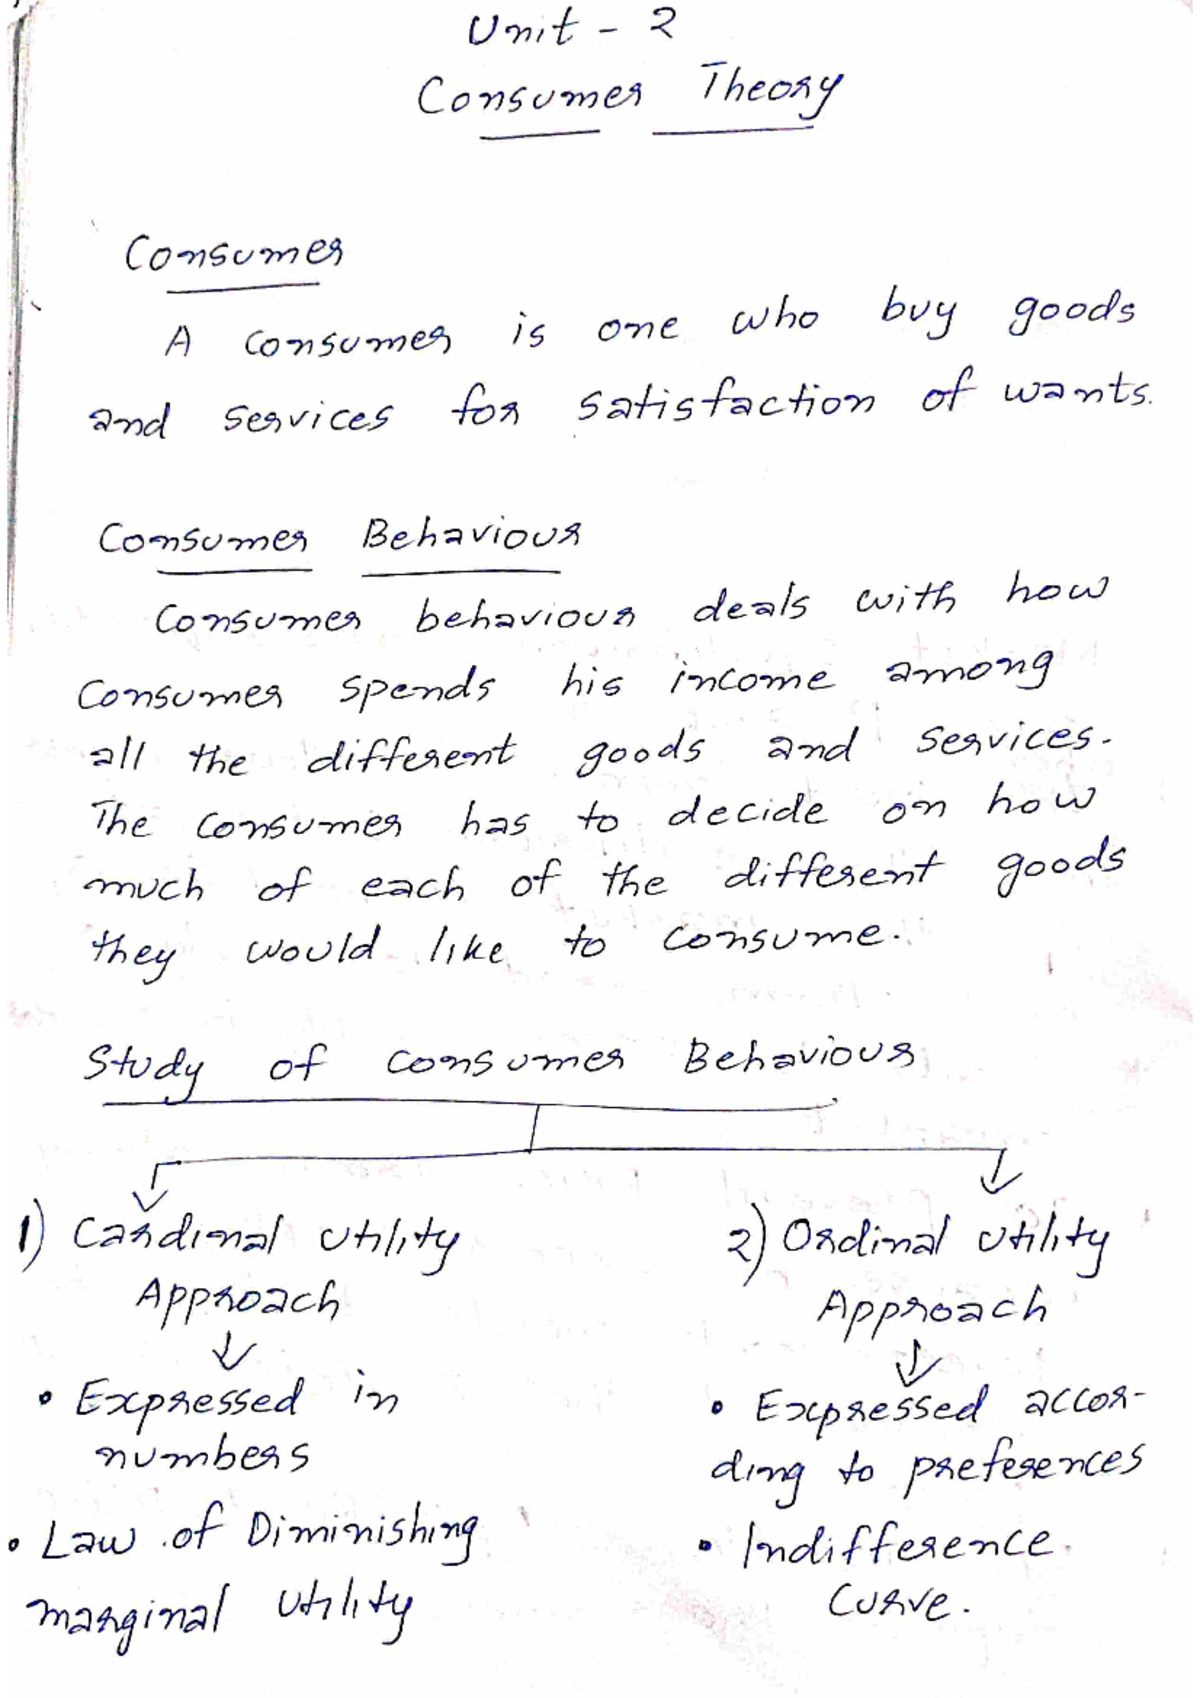 Unit - 2
Consumer Theory
Consumer
A consumer is one who buy goods
and services for satisfaction of wants.
Consumer Behaviour
Consumer behaviour deals with how
consumer spends his income among
all the different goods and services.
The consumer has to decide on how
much of each of the different goods
they would like to consume.
Study of consumer Behaviour
1) Cardinal utility
Approach
2) Ordinal utility
Approach
• Expressed in
numbers
• Law of Diminishing
marginal utility
• Expressed accor-
ding to preferences
• Indifference
Curve.